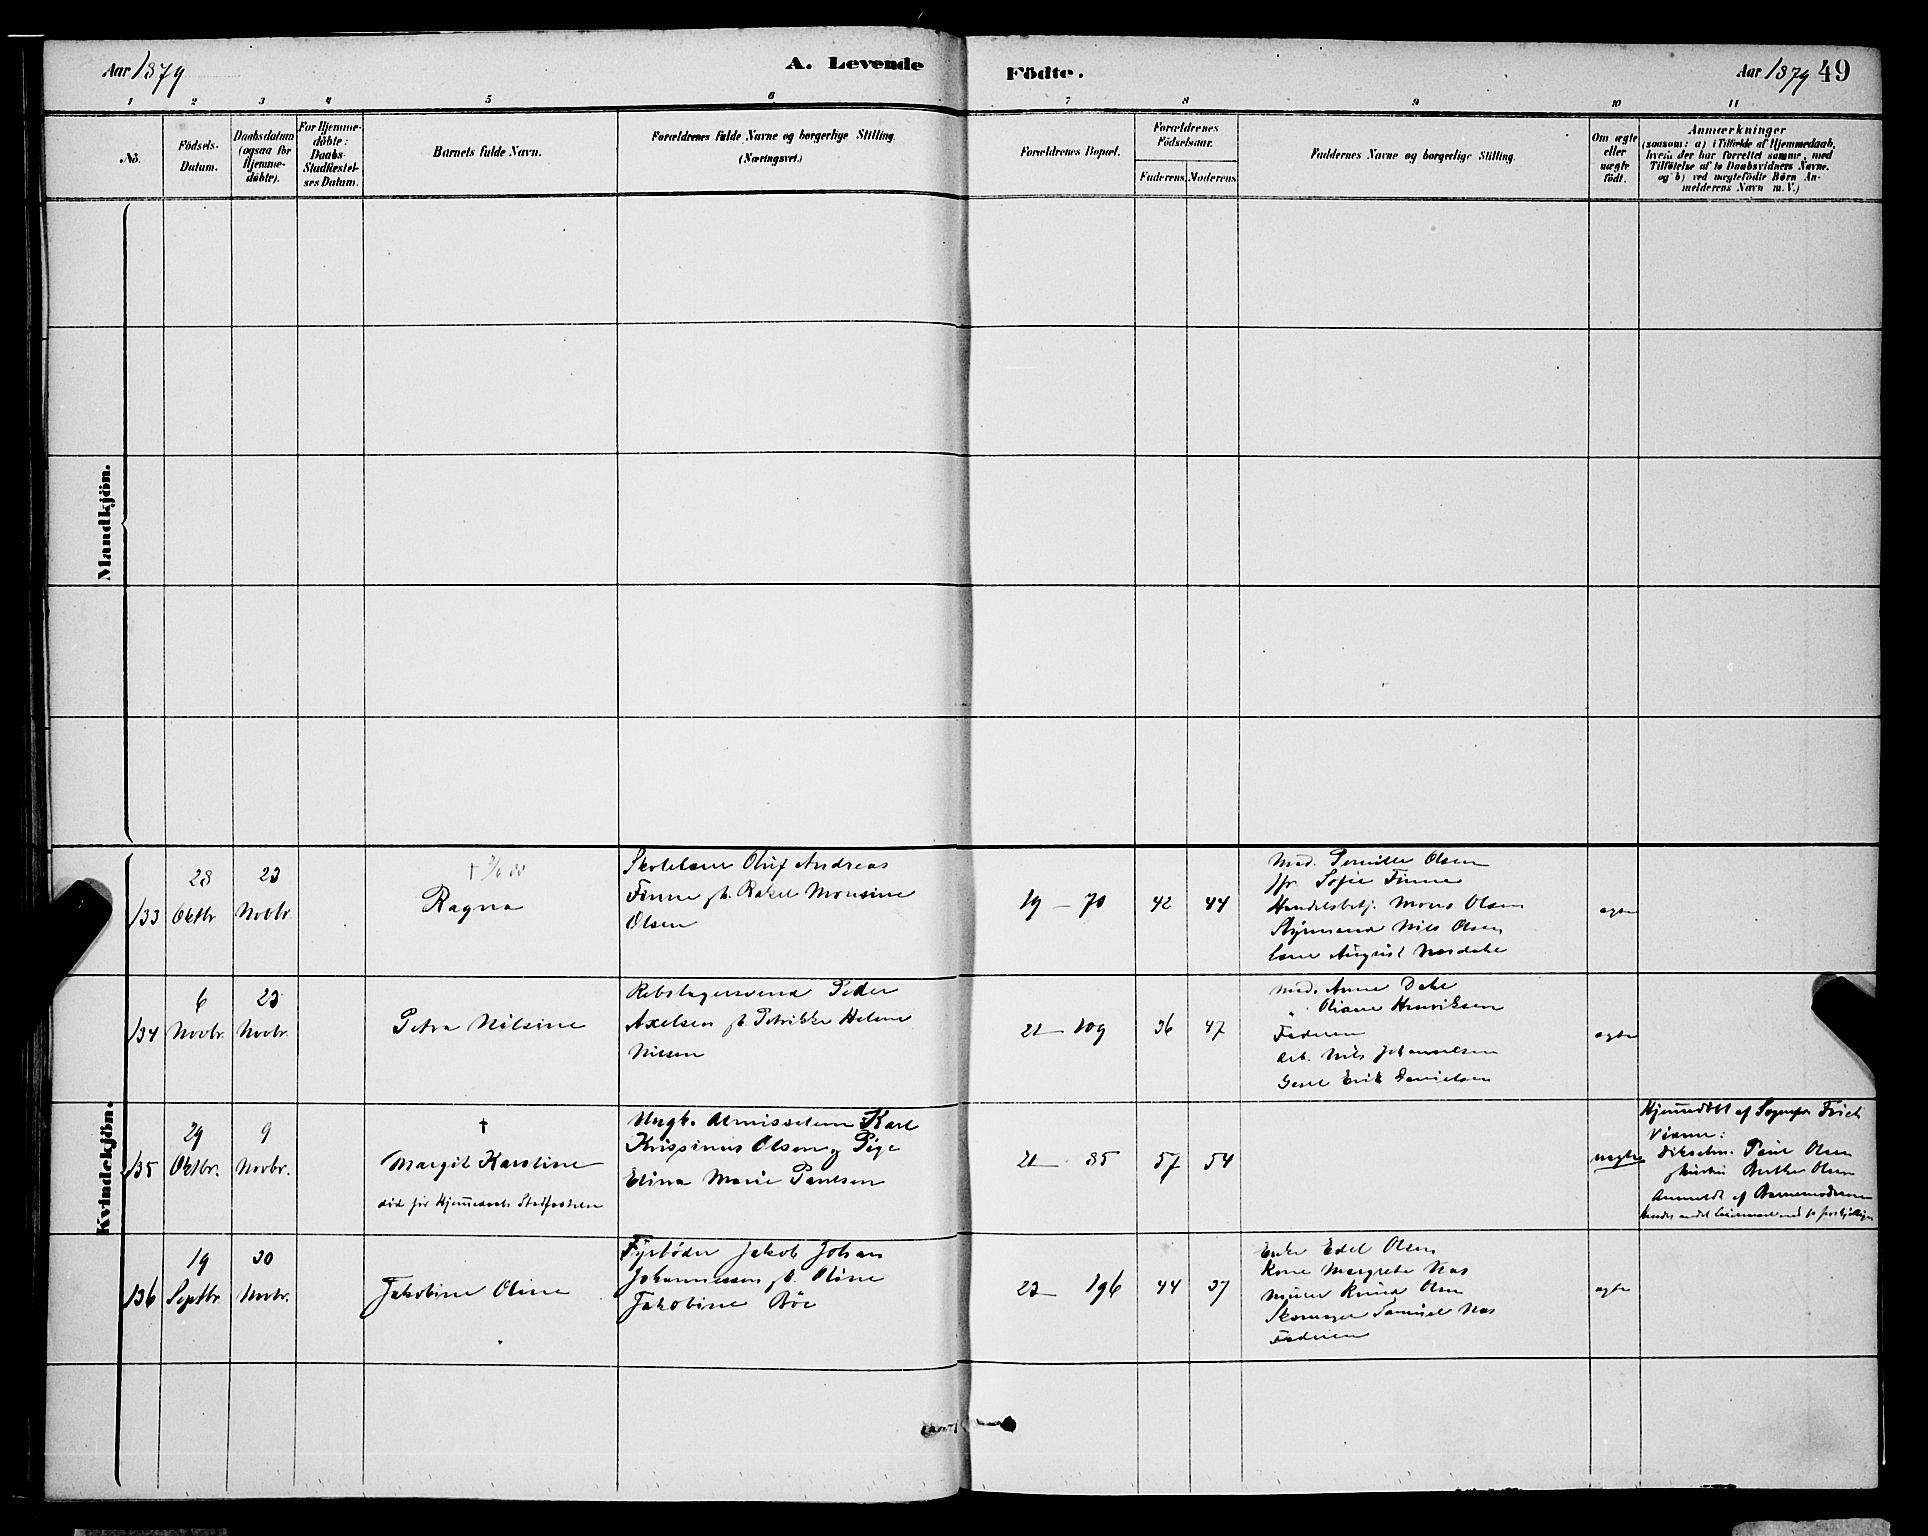 Aar 1879
A. Levende
Födte.
Aar 1879
49
1 2 3 4 5 6 7 8 9 10 11
No.
Födsels-
Datum.
Daabsdatum
(ogsaa for
Hjemme-
döbte).
For Hjemme-
döbte:
Daabs-
Stadfæstel-
ses Datum.
Barnets fulde Navn.
Forældrenes fulde Navne og borgerlige Stilling.
(Næringsvei.)
Forældrenes Bopæl.
Forældrenes
Födselsaar.
Faderens. Moderens.
Faddernes Navne og borgerlige Stilling.
Om ægte
eller
uægte
födt.
Anmærkninger
(saasom: a) i Tilfælde af Hjemmedaab,
hvem der har forrettet samme, med
Tilföielse af to Daabsvidners Navne,
og b) ved uægtefödte Börn An-
melderens Navn m. V.)
Mandkjön.
Kvindekjön.
133
28
Oktbr.
23
Novbr.
†
Ragna
Skolelærer Oluf Andreas
Finne Rakel Monsine
Olsen
19 - 70
42
44
Mad. Pernille Olsen
Jfr. Sofie Finne
Handelsbetj. Mons Olsen
Styrmand Nils Olsen
August
ægte
134
6
Novbr.
23
Novbr.
Petra Nilsine
Rebslagersvend Peder
Axelsen Petrikke Helene
Nilsen
21 - 109
36
47
Mad. Anne Dahl
" Oliane Henriksen
Faderen
Arb. Nils Johannesen
Gesel Erik Danielsen
ægte
135
29
Oktbr.
9
Novbr.
†
Margit Karoline
död för Hjemmedaabs Stadfæstelse
Ungk. Karl
Olsen og Pige
Elina Marie Paulsen
21 - 85
57
54
uægte
Hjemmedöbt af Sognepr. Frich
Vidner:
Olsen
Berthe Olsen
Anmeldt af Barnemoderen
136
19
Septbr.
30
Novbr.
Jakobine Oline
Fyrböder Jakob Johan
Johannessen Oline
Jakobine Böe
23 - 196
44
37
Enke Edel Olsen
Kone Margrete Næs
Murer Knud Olsen
Skomager Samuel Næs
Faderen
ægte